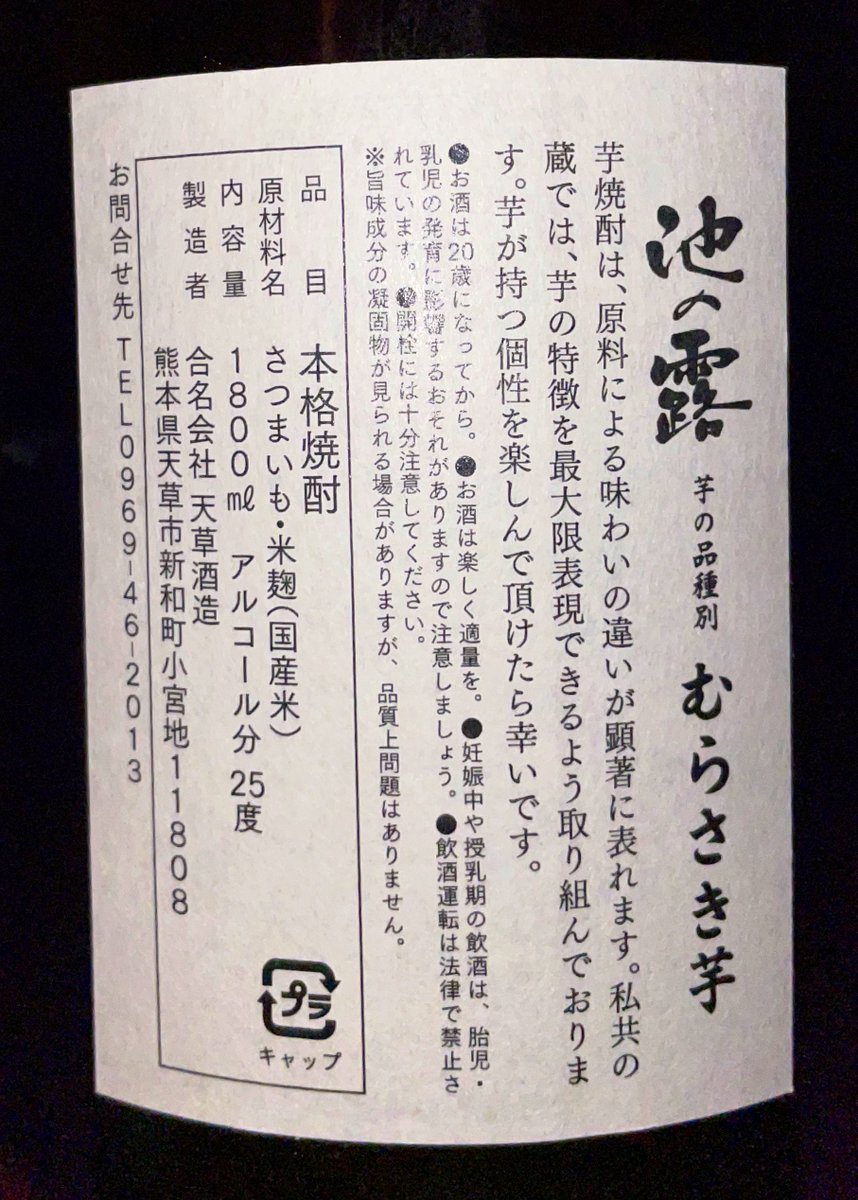 池の露 芋の品種別 むらさき芋
芋焼酎は、原料による味わいの違いが顕著に表れます。私共の
蔵では、芋の特徴を最大限表現できるよう取り組んでおりま
す。芋が持つ個性を楽しんで頂けたら幸いです。
●お酒は20歳になってから。●お酒は楽しく適量を。●妊娠中や授乳期の飲酒は、胎児・
乳児の発育に影響するおそれがありますので注意しましょう。●飲酒運転は法律で禁止さ
れています。●開栓には十分注意してください。
※旨味成分の凝固物が見られる場合がありますが、品質上問題はありません。
品目 本格焼酎
原材料名 さつまいも・米麹(国産米)
内容量 1800㎖ アルコール分 25度
製造者 合名会社 天草酒造
熊本県天草市新和町小宮地11808
プラ
キャップ
お問合せ先 TEL0969-46-2013